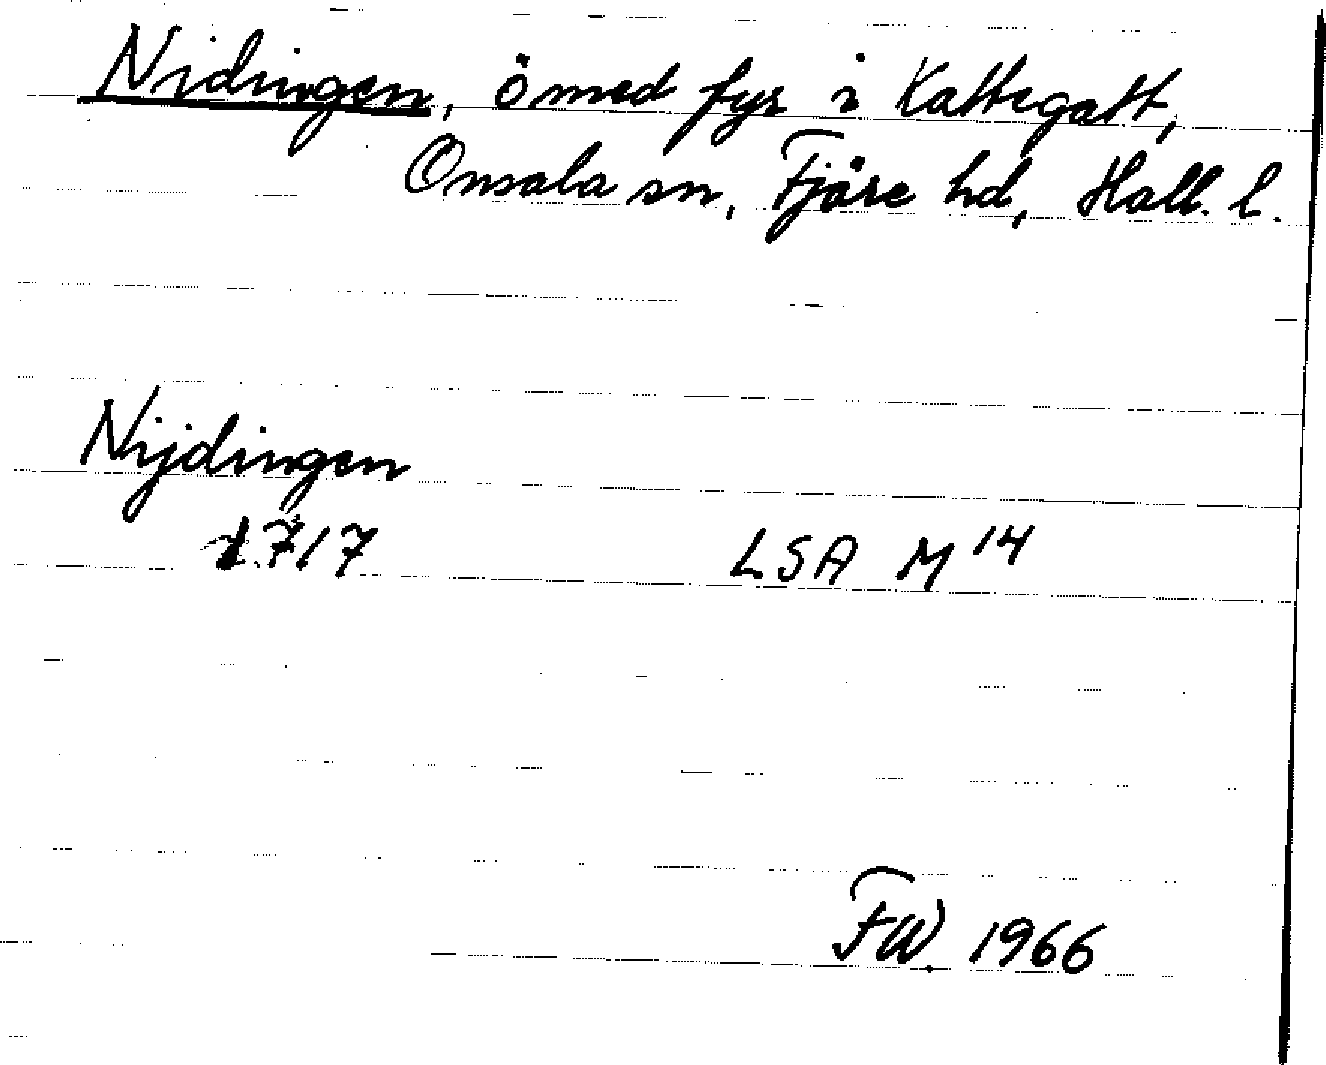 Nidingen, ö med fyr i Kattegatt,
Onsala sn, Fjäre hd, Hall. l.
Nijdingen
1717 LSA M 14
FW. 1966